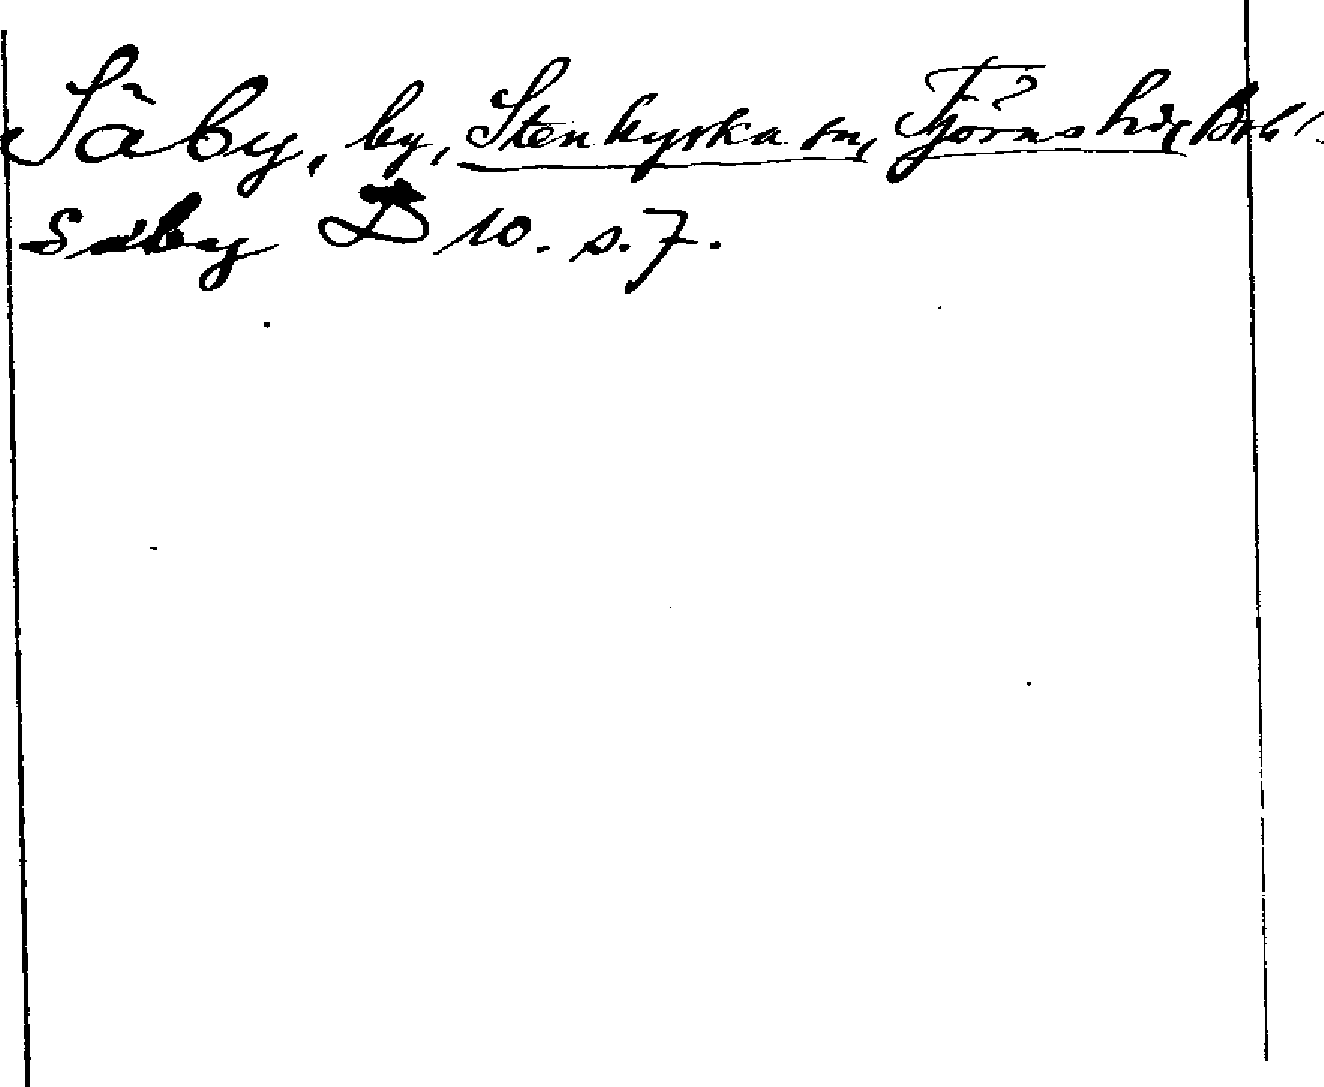 Säby, by, Stenkyrka sn, Tjörns hd, Boh l.
Säby D 10. s. 7.